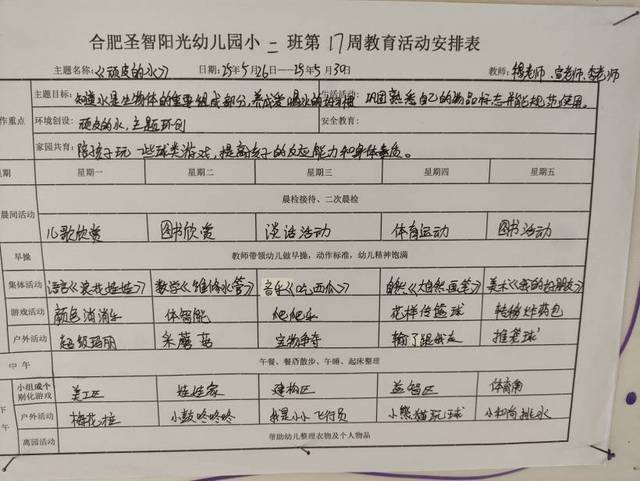 合肥圣智阳光幼儿园小二班第17周教育活动安排表
主题名称:《顽皮的水》 日期:25年5月26日—25年5月30日 教师:杨老师、宣老师、李老师
主题目标:知道水是生物体的重要组成部分,养成爱喝水的好习惯 生活活动:巩固熟悉自己的物品标志并能规范使用。
作重点 环境创设:顽皮的水,主题环创 安全教育:
家园共育:陪孩子玩一些球类游戏,提高孩子的反应能力和身体素质。
期 星期一 星期二 星期三 星期四 星期五
晨检接待、二次晨检
晨间活动 儿歌欣赏 图书欣赏 谈话活动 体育运动 图书活动
早操 教师带领幼儿做早操,动作标准,幼儿精神饱满
集体活动 语言《浪花娃娃》 数学《维修水管》 音乐《吃西瓜》 自然《大自然画笔》 美术《我的好朋友》
游戏活动 颜色消消乐 体智能 爬爬乐 花样传篮球 转移炸药包
户外活动 超级玛丽 采蘑菇 宝物争夺 输了跟我走 推笼球
中午 午餐、餐后散步、午睡、起床整理
小组或个别化游戏 美工区 娃娃家 建构区 益智区 体育角
下午 户外活动 梅花桩 小鼓咚咚咚 我是小小飞行员 小熊猫玩球 小和尚挑水
离园活动 帮助幼儿整理衣物及个人物品